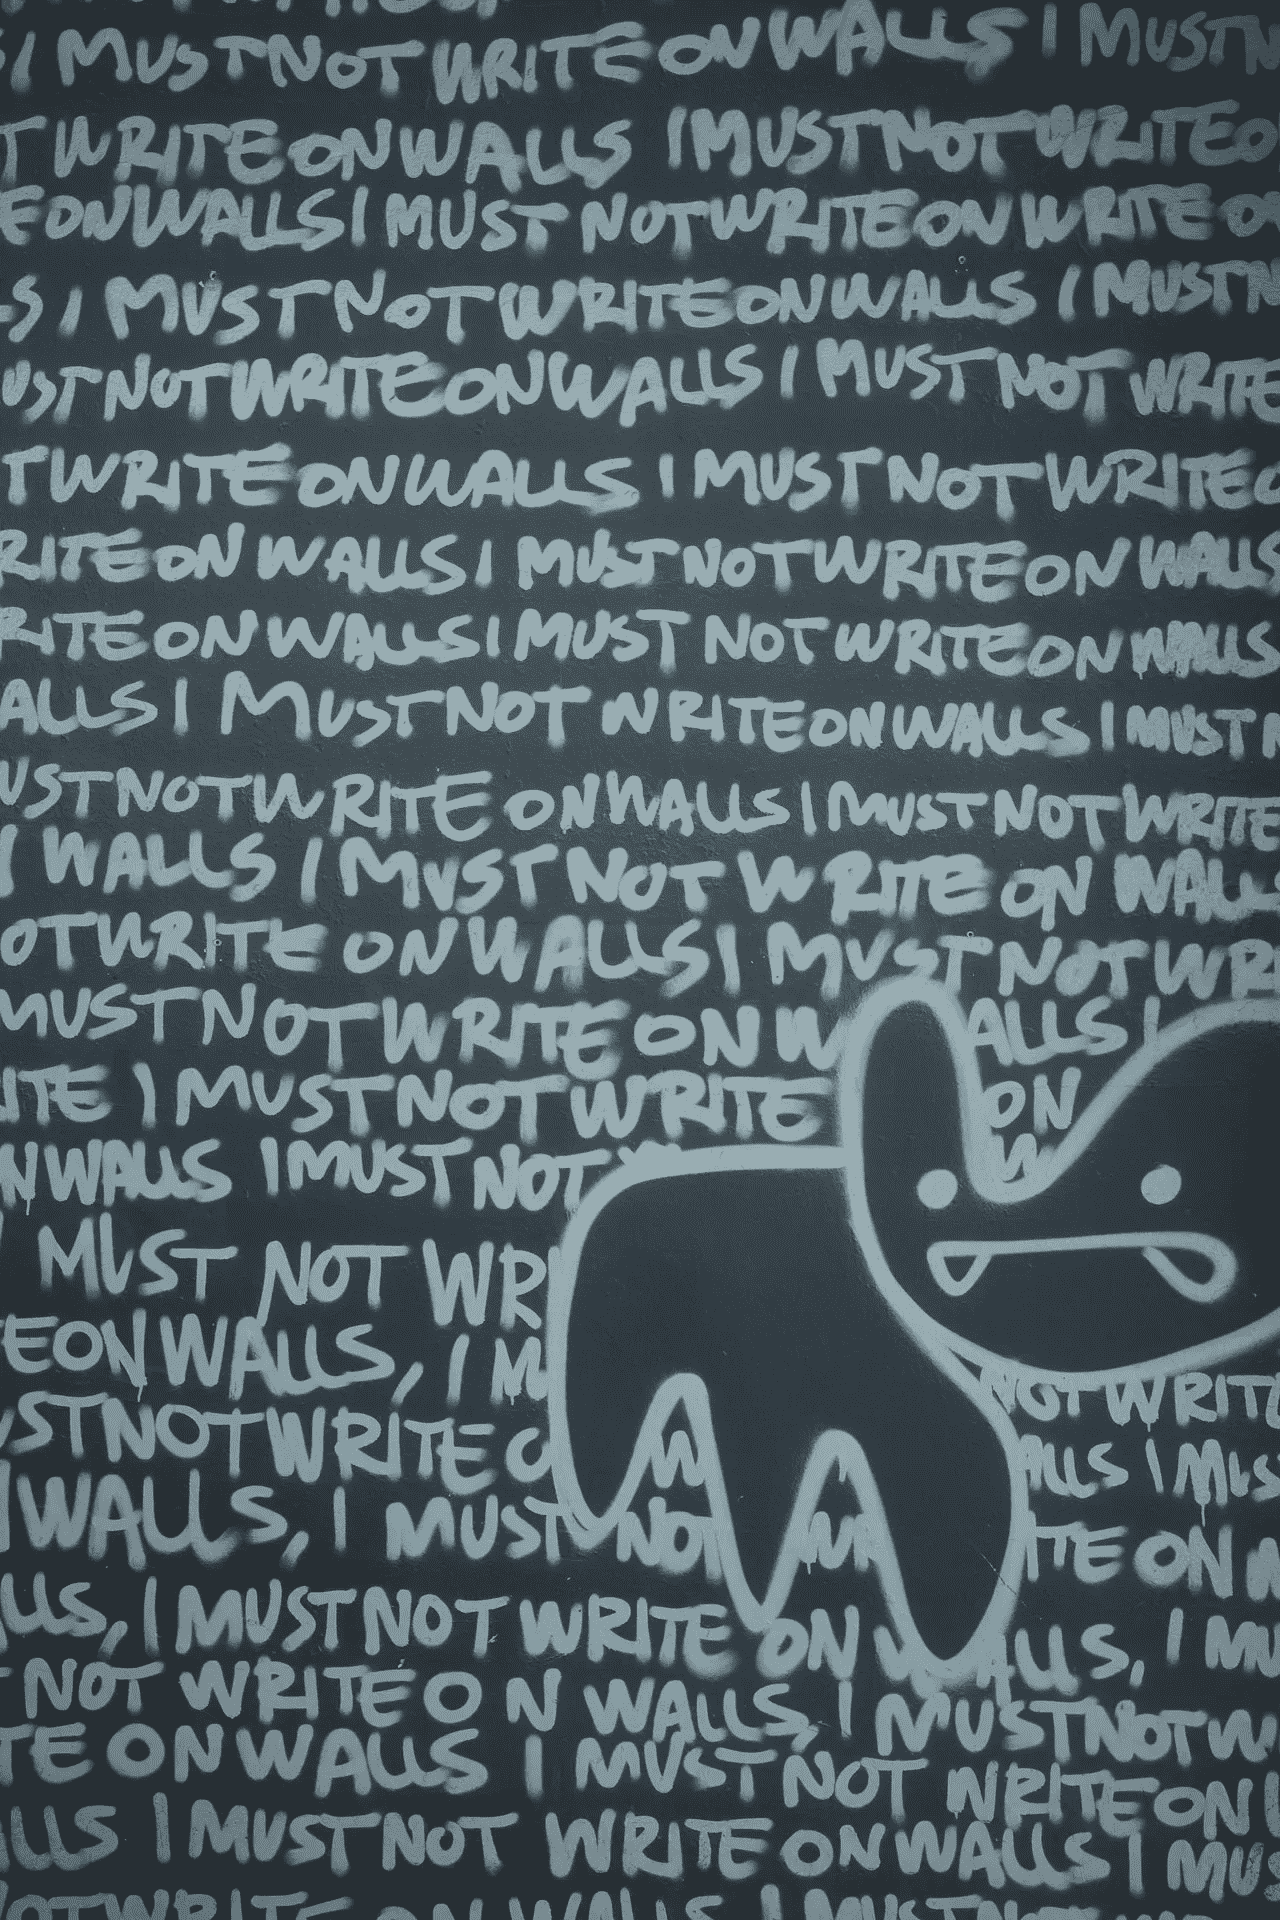 I MUST NOT WRITE ON WALLS I MUST N
T WRITE ON WALLS I MUST NOT WRITE O
E ON WALLS I MUST NOT WRITE ON WRITE O
S I MUST NOT WRITE ON WALLS I MUST N
UST NOT WRITE ON WALLS I MUST NOT WRITE
T WRITE ON WALLS I MUST NOT WRITE O
RITE ON WALLS I MUST NOT WRITE ON WALLS
RITE ON WALLS I MUST NOT WRITE ON WALLS
ALLS I MUST NOT WRITE ON WALLS I MUST N
UST NOT WRITE ON WALLS I MUST NOT WRITE
WALLS I MUST NOT WRITE ON WALLS
OT WRITE ON WALLS I MUST NOT WRI
MUST NOT WRITE ON W ALLS I
ITE I MUST NOT WRITE ON
N WALLS I MUST NOT W
MUST NOT WRI
E ON WALLS, I M NOT WRITE
UST NOT WRITE O W ALLS I MUS
WALLS, I MUST NOT WR ITE ON W
LLS, I MUST NOT WRITE ON W ALLS, I MU
NOT WRITE ON WALLS, I MUST NOT W
TE ON WALLS I MUST NOT WRITE ON
LLS I MUST NOT WRITE ON WALLS I MUS
OT WRITE ON WALLS I MUST NOT WR